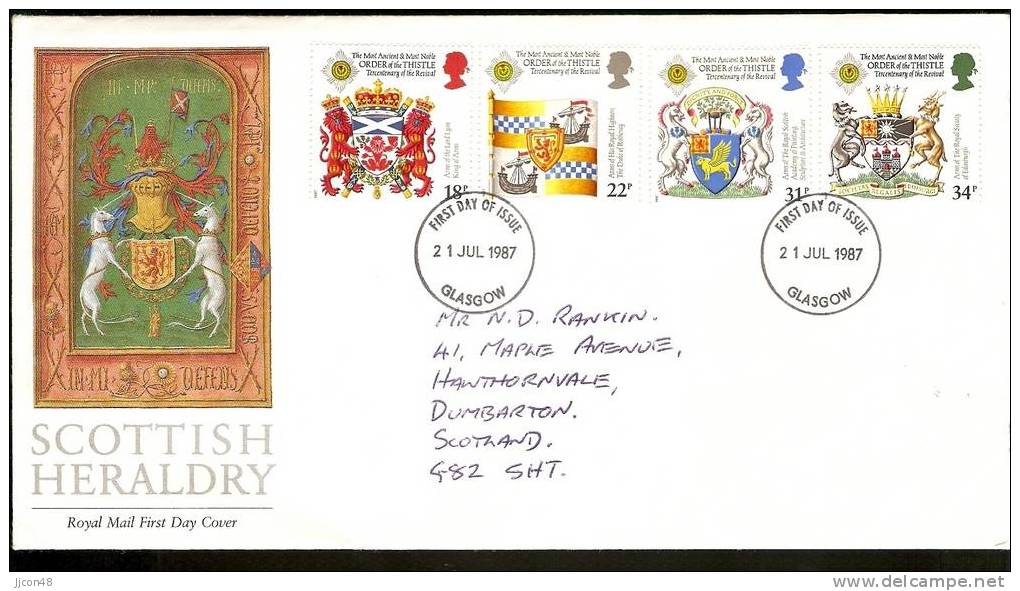 IN · MY · DEFENS
IN · MI · DEFENS
SCOTTISH
HERALDRY
Royal Mail First Day Cover
The Most Ancient & Most Noble
ORDER of the THISTLE
Tercentenary of the Revival
Arms of the Lord Lyon
King of Arms
18P
The Most Ancient & Most Noble
ORDER of the THISTLE
Tercentenary of the Revival
Arms of His Royal Highness
The Duke of Rothesay
22P
The Most Ancient & Most Noble
ORDER of the THISTLE
Tercentenary of the Revival
Arms of The Royal Scottish
Academy of Painting
Sculpture & Architecture
31P
The Most Ancient & Most Noble
ORDER of the THISTLE
Tercentenary of the Revival
Arms of The Royal Society
of Edinburgh
SOCIETAS REGALIS EDINBURGI
34P
FIRST DAY OF ISSUE
21 JUL 1987
GLASGOW
FIRST DAY OF ISSUE
21 JUL 1987
GLASGOW
MR N.D. RANKIN.
41, MAPLE AVENUE,
HAWTHORNVALE,
DUMBARTON.
SCOTLAND.
G82 5HT.
jjcon48
www.delcampe.net